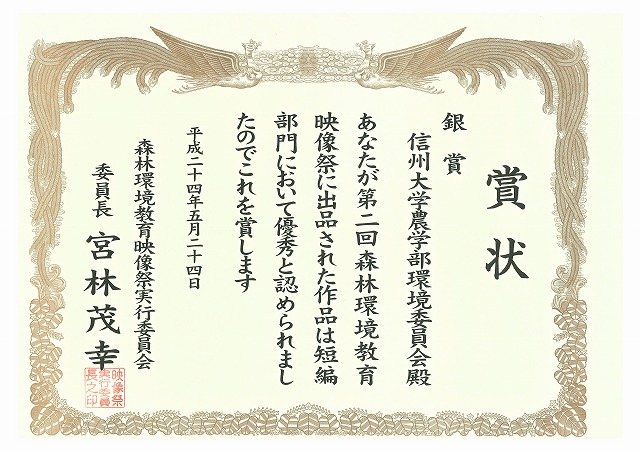 賞状
銀賞
信州大学農学部環境委員会殿
あなたが第二回森林環境教育
映像祭に出品された作品は短編
部門において優秀と認められまし
たのでこれを賞します
平成二十四年五月二十四日
森林環境教育映像祭実行委員会
委員長 宮林茂幸
映像祭
実行委員
長之印